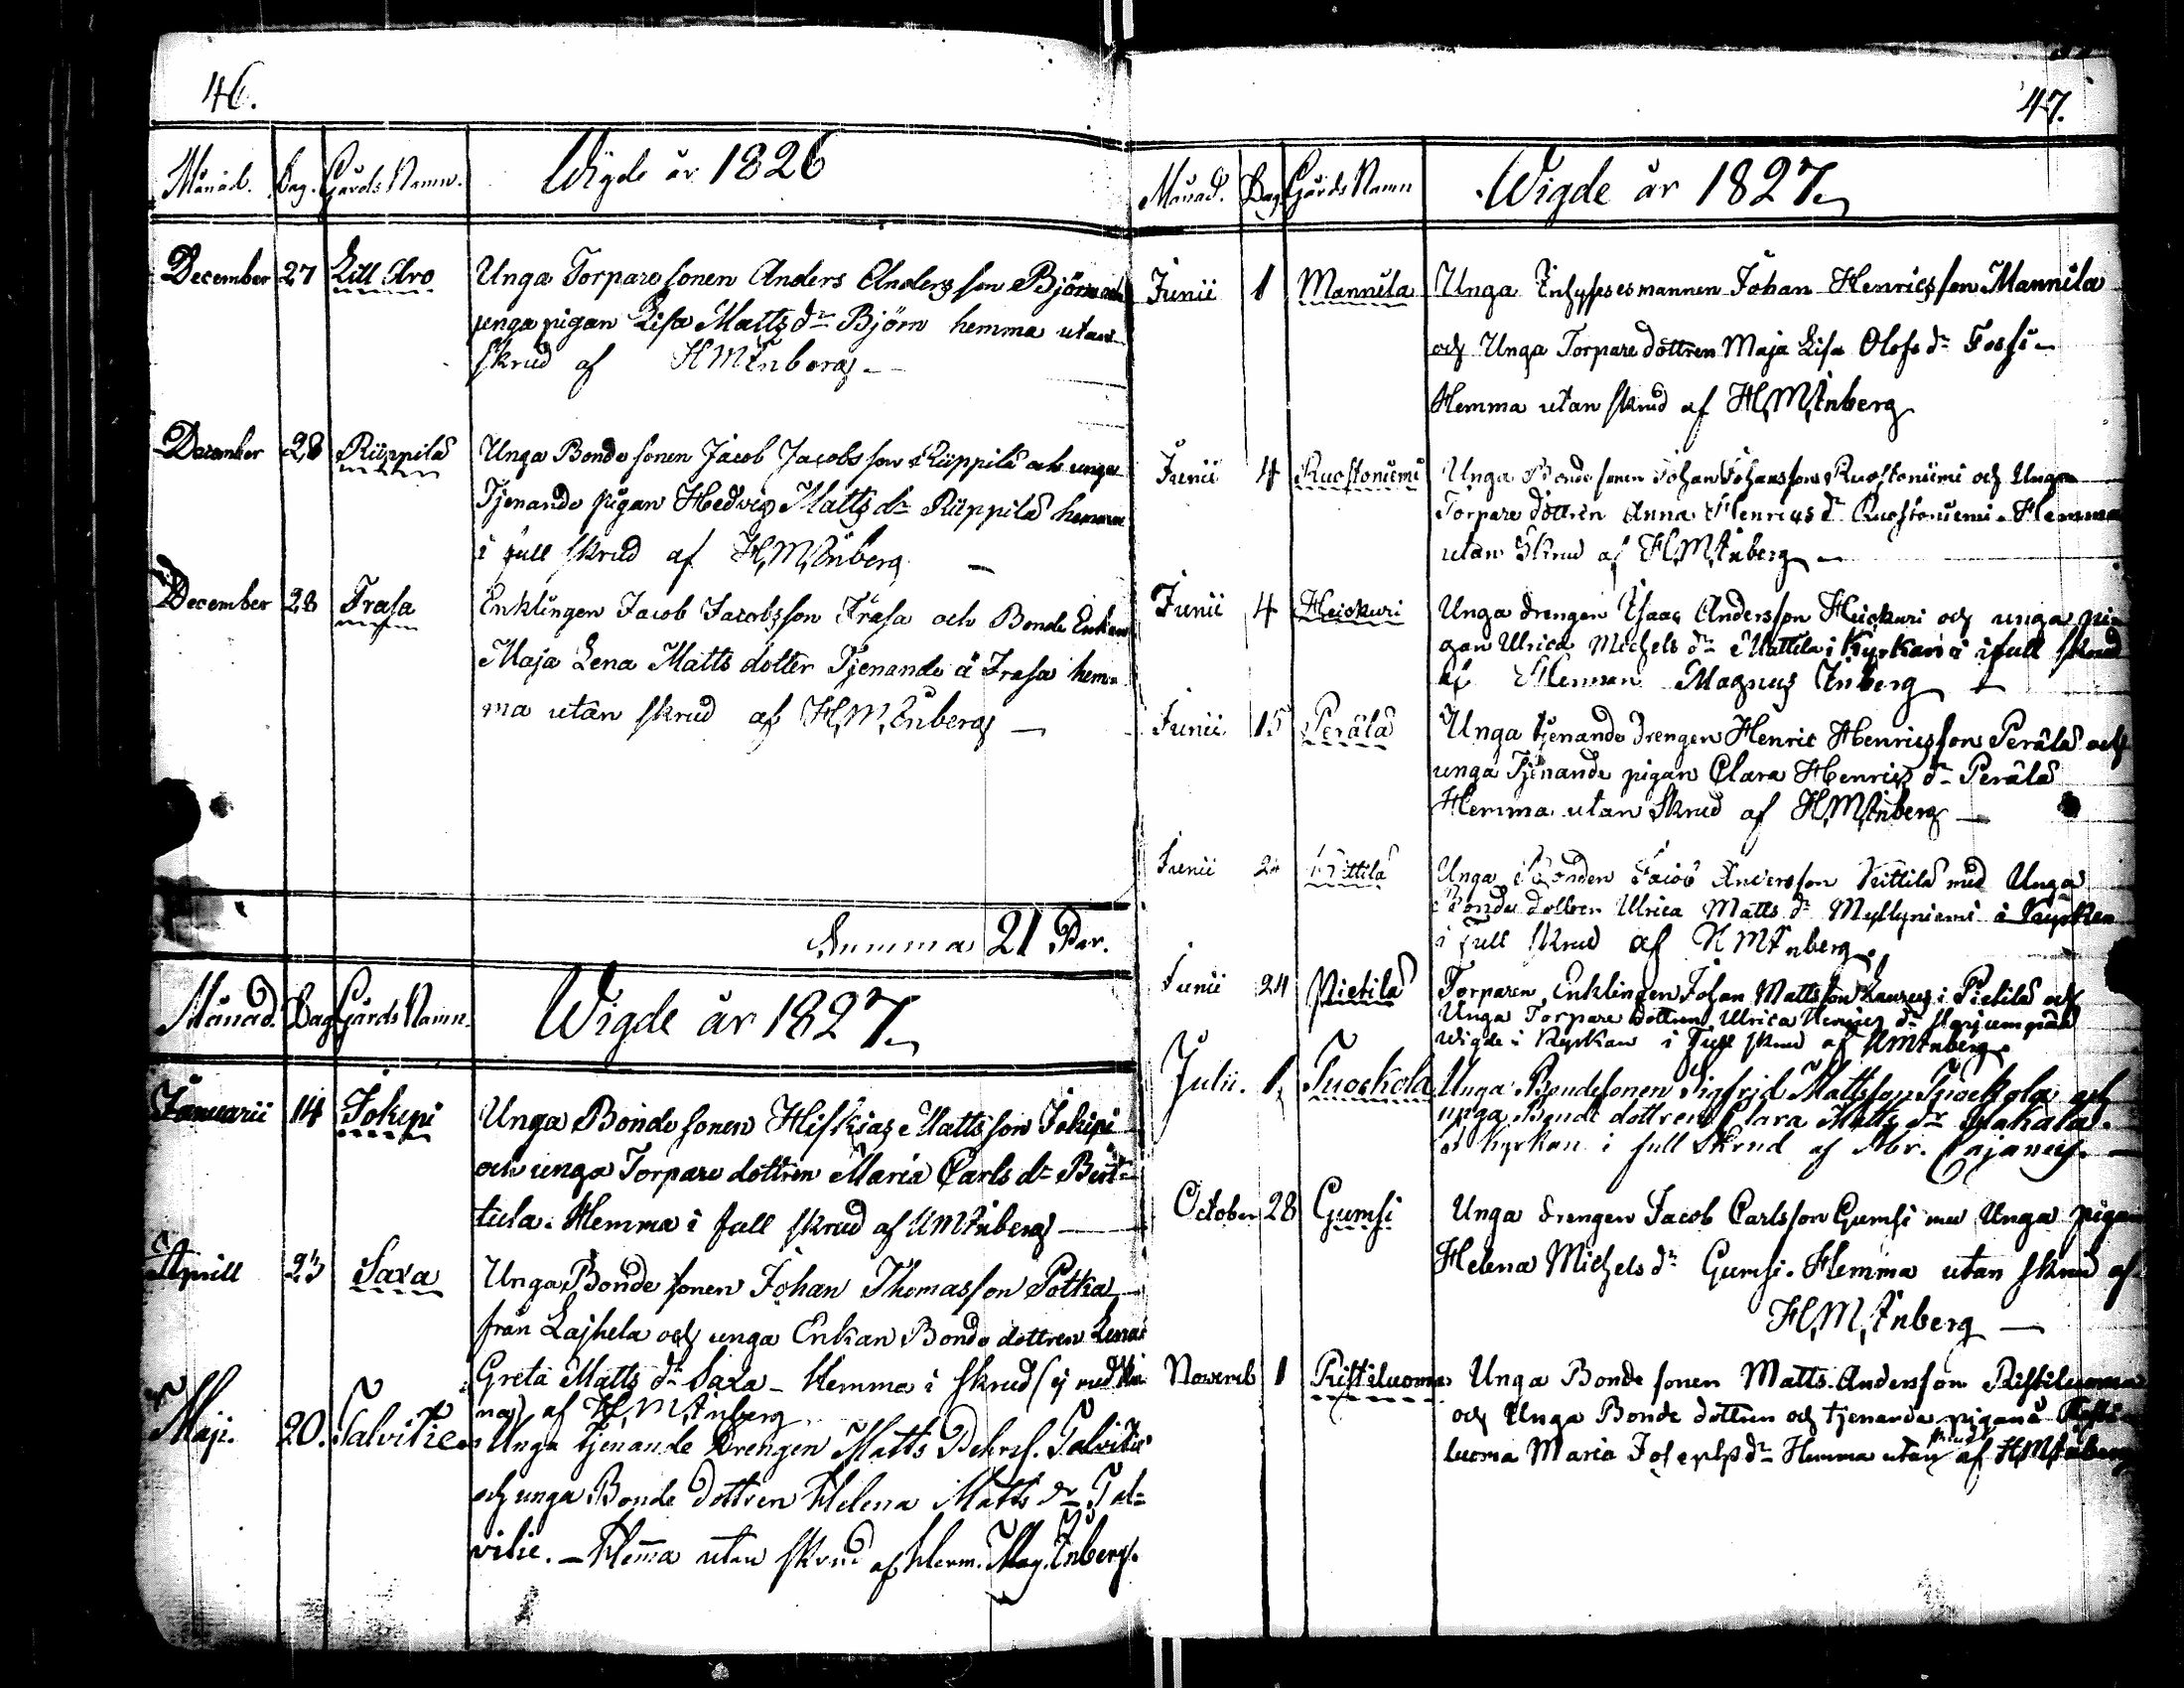 46.
Månad. Dag. Gårds Namn. Wigde år 1826
December 27 Lill Aro Unga Torpare sonen Anders Andersson Björn och
unga pigan Lisa Matts dr Björn hemma utan
skrud af HMInberg
December 28 Riippilä Unga Bonde sonen Jacob Jacobsson Riippilä och unga
Tjenande pigan Hedvig Matts dr Riippilä hemma
i full skrud af H,M,Inberg
December 28 Frasa Enklingen Jacob Jacobsson Frasa och Bonde Enkan
Maja Lena Matts dotter Tjenande å Frasa hem-
ma utan skrud af H,M,Inberg
Summa 21 Par.
Månad. Dag Gårds Namn. Wigde år 1827.
Januarii 14 Jokipi Unga Bonde sonen Hiskias Mattsson Jokipi
och unga Torpare dottren Maria Carls dr
tula. Hemma i full skrud af HMInberg
Aprill 23 Saxa Unga Bonde sonen Johan Thomasson Potka
från Lajhela och unga Enkan Bonde dottren Lena
Greta Matts dr Saxa - Hemma i skrud (ej med
af H,M,Inberg
Maji. 20. Talvitie Unga tjenande Drengen Matts Talvitie
och unga Bonde dottren Helena Matts dr Tal=
vitie. - Hemma utan skrud af Herm. Mag. Inberg.
47.
Månad. Dag Gårds Namn Wigde år 1827.
Junii 1 Mannila Unga Inhysses mannen Johan Henricsson Mannila
och Unga Torpare dottren Maja Lisa Olofs dr Fossi -
Hemma utan skrud af H,M,Inberg
Junii 4 Ruostoniemi Unga Bonde sonen Johan Johansson Ruostoniemi och Unga
Torpare dottren Anna Henrics dr Ruostoniemi - Hemma
utan Skrud af H,M,Inberg
Junii 4 Heickuri Unga drengen Isaac Andersson Heickuri och unga pi-
gan Ulrica Michels dr Mattila i Kyrkan i full skrud
af Herman Magnus Inberg
Junii 15 Perälä Unga tjenande drengen Henric Henricsson Perälä och
unga Tjenande pigan Clara Henrics dr Perälä
Hemma utan Skrud af H,M,Inberg
Junii 24 Kittilä Unga Bonden Jacob Andersson Kittilä med Unga
Bonde dottren Ulrica Matts dr Myllyniemi i Kyrkan
i full skrud af HMInberg.
Junii 24 Pietilä Torparen Enklingen Johan Mattsson i Pietilä och
Unga Torpare dottren Ulrica Henrics dr
wigde i Kyrkan i full skrud af HMInberg.
Julii. 1. Tuockola Unga Bondesonen Sigfrid Mattsson Tuockola och
unga Bonde dottren Clara Matts dr
i Kyrkan i full Skrud af Abr. Cajanus.
October 28 Gumsi Unga drengen Jacob Carlsson Gumsi med Unga pigan
Helena Michels dr Gumsi. Hemma utan skrud af
H,M,Inberg
Novemb 1 Ristiluoma Unga Bonde sonen Matts Andersson Ristiluoma
och Unga Bonde dottren och tjenande pigan å Risti-
luoma Maria Josephs dr Hemma utan skrud af HMInberg